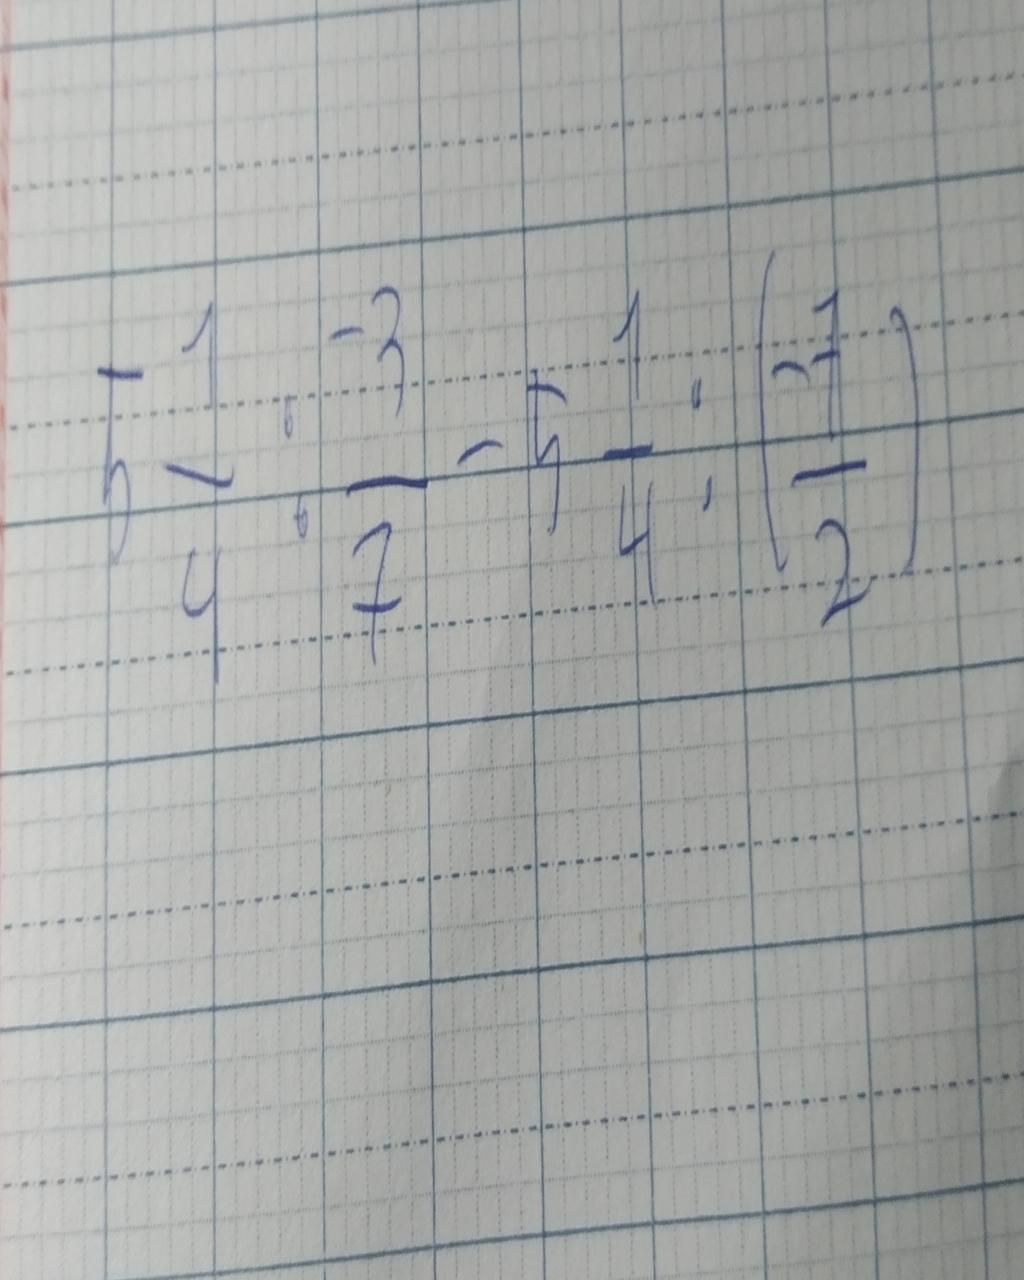 5 1/4 : -3/7 - 5 1/4 : (-7/2)